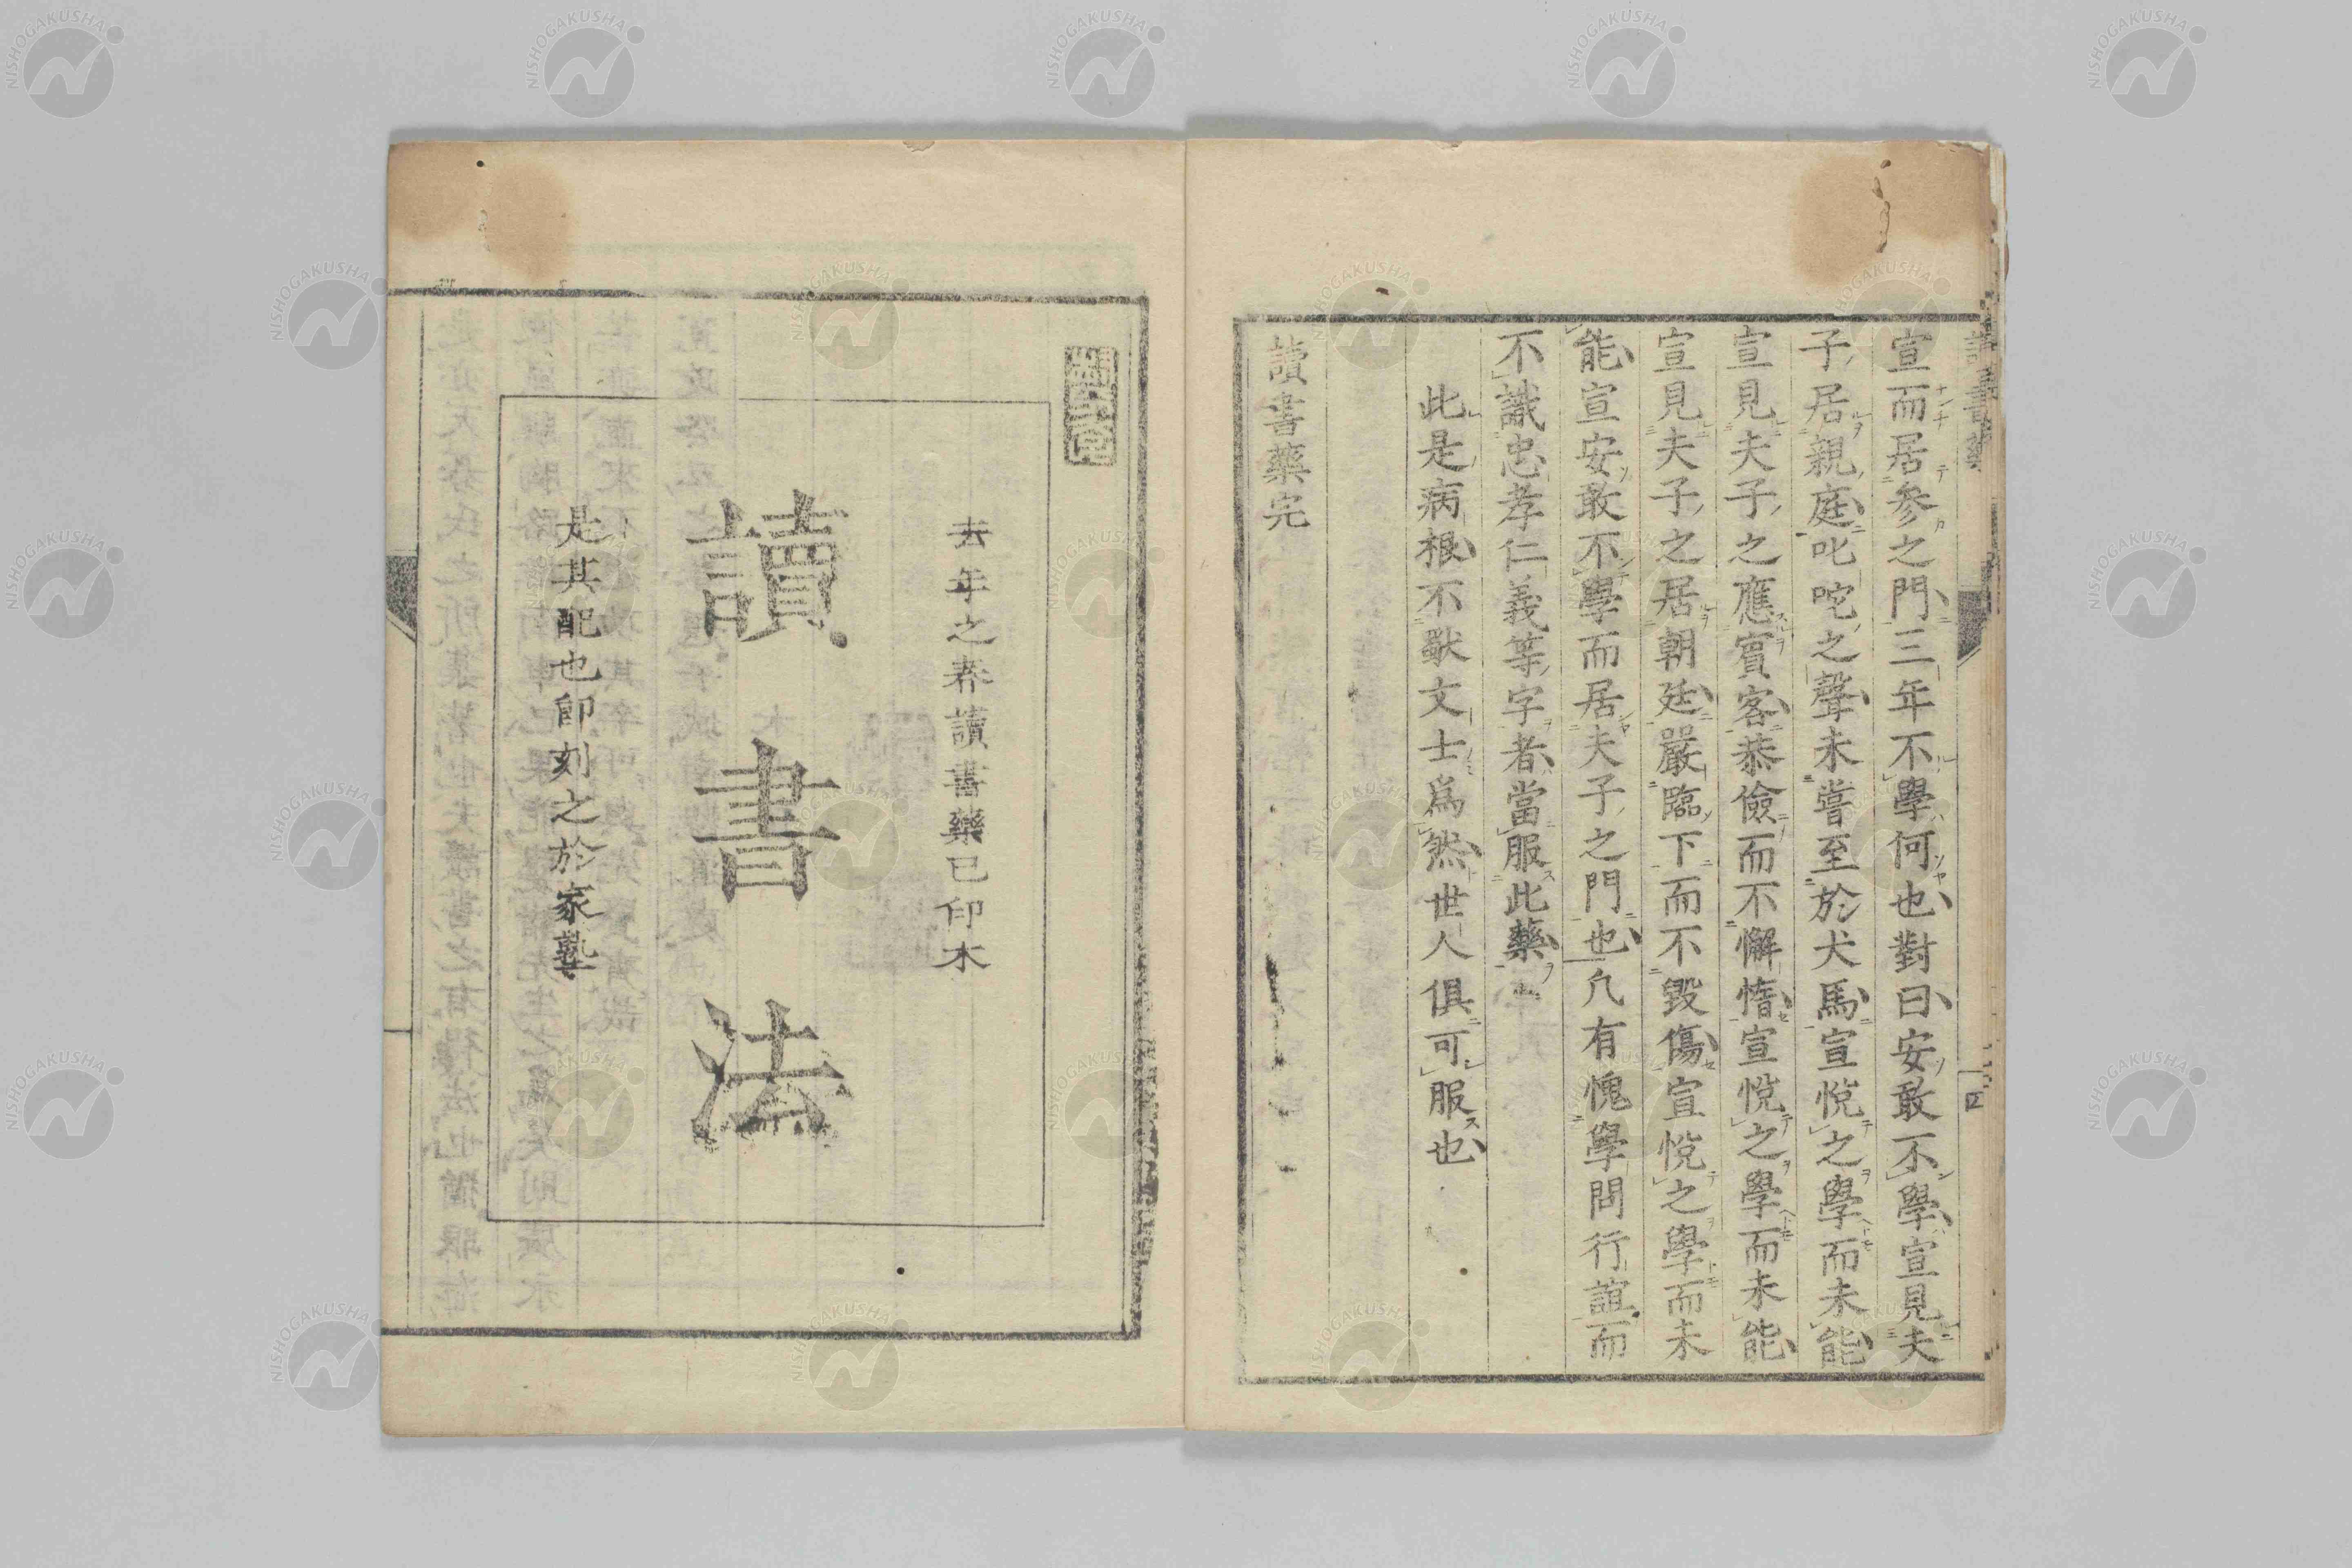 宣而居參之門三年不學何也對曰安敢不學宣見夫
子居親庭叱咤之聲未嘗至於犬馬宣悅之學而未能
宣見夫子之應賓客恭儉而不懈惰宣悅之學而未能
宣見夫子之居朝廷嚴臨下而不毀傷宣悅之學而未
能宣安敢不學而居夫子之門也凡有愧學問行誼而
不識忠孝仁義等字者當服此藥
此是病根不獣文士爲然世人俱可服也
讀書藥完
去年之春讀書藥已印木
讀書法
是其配也卽刻之於家塾